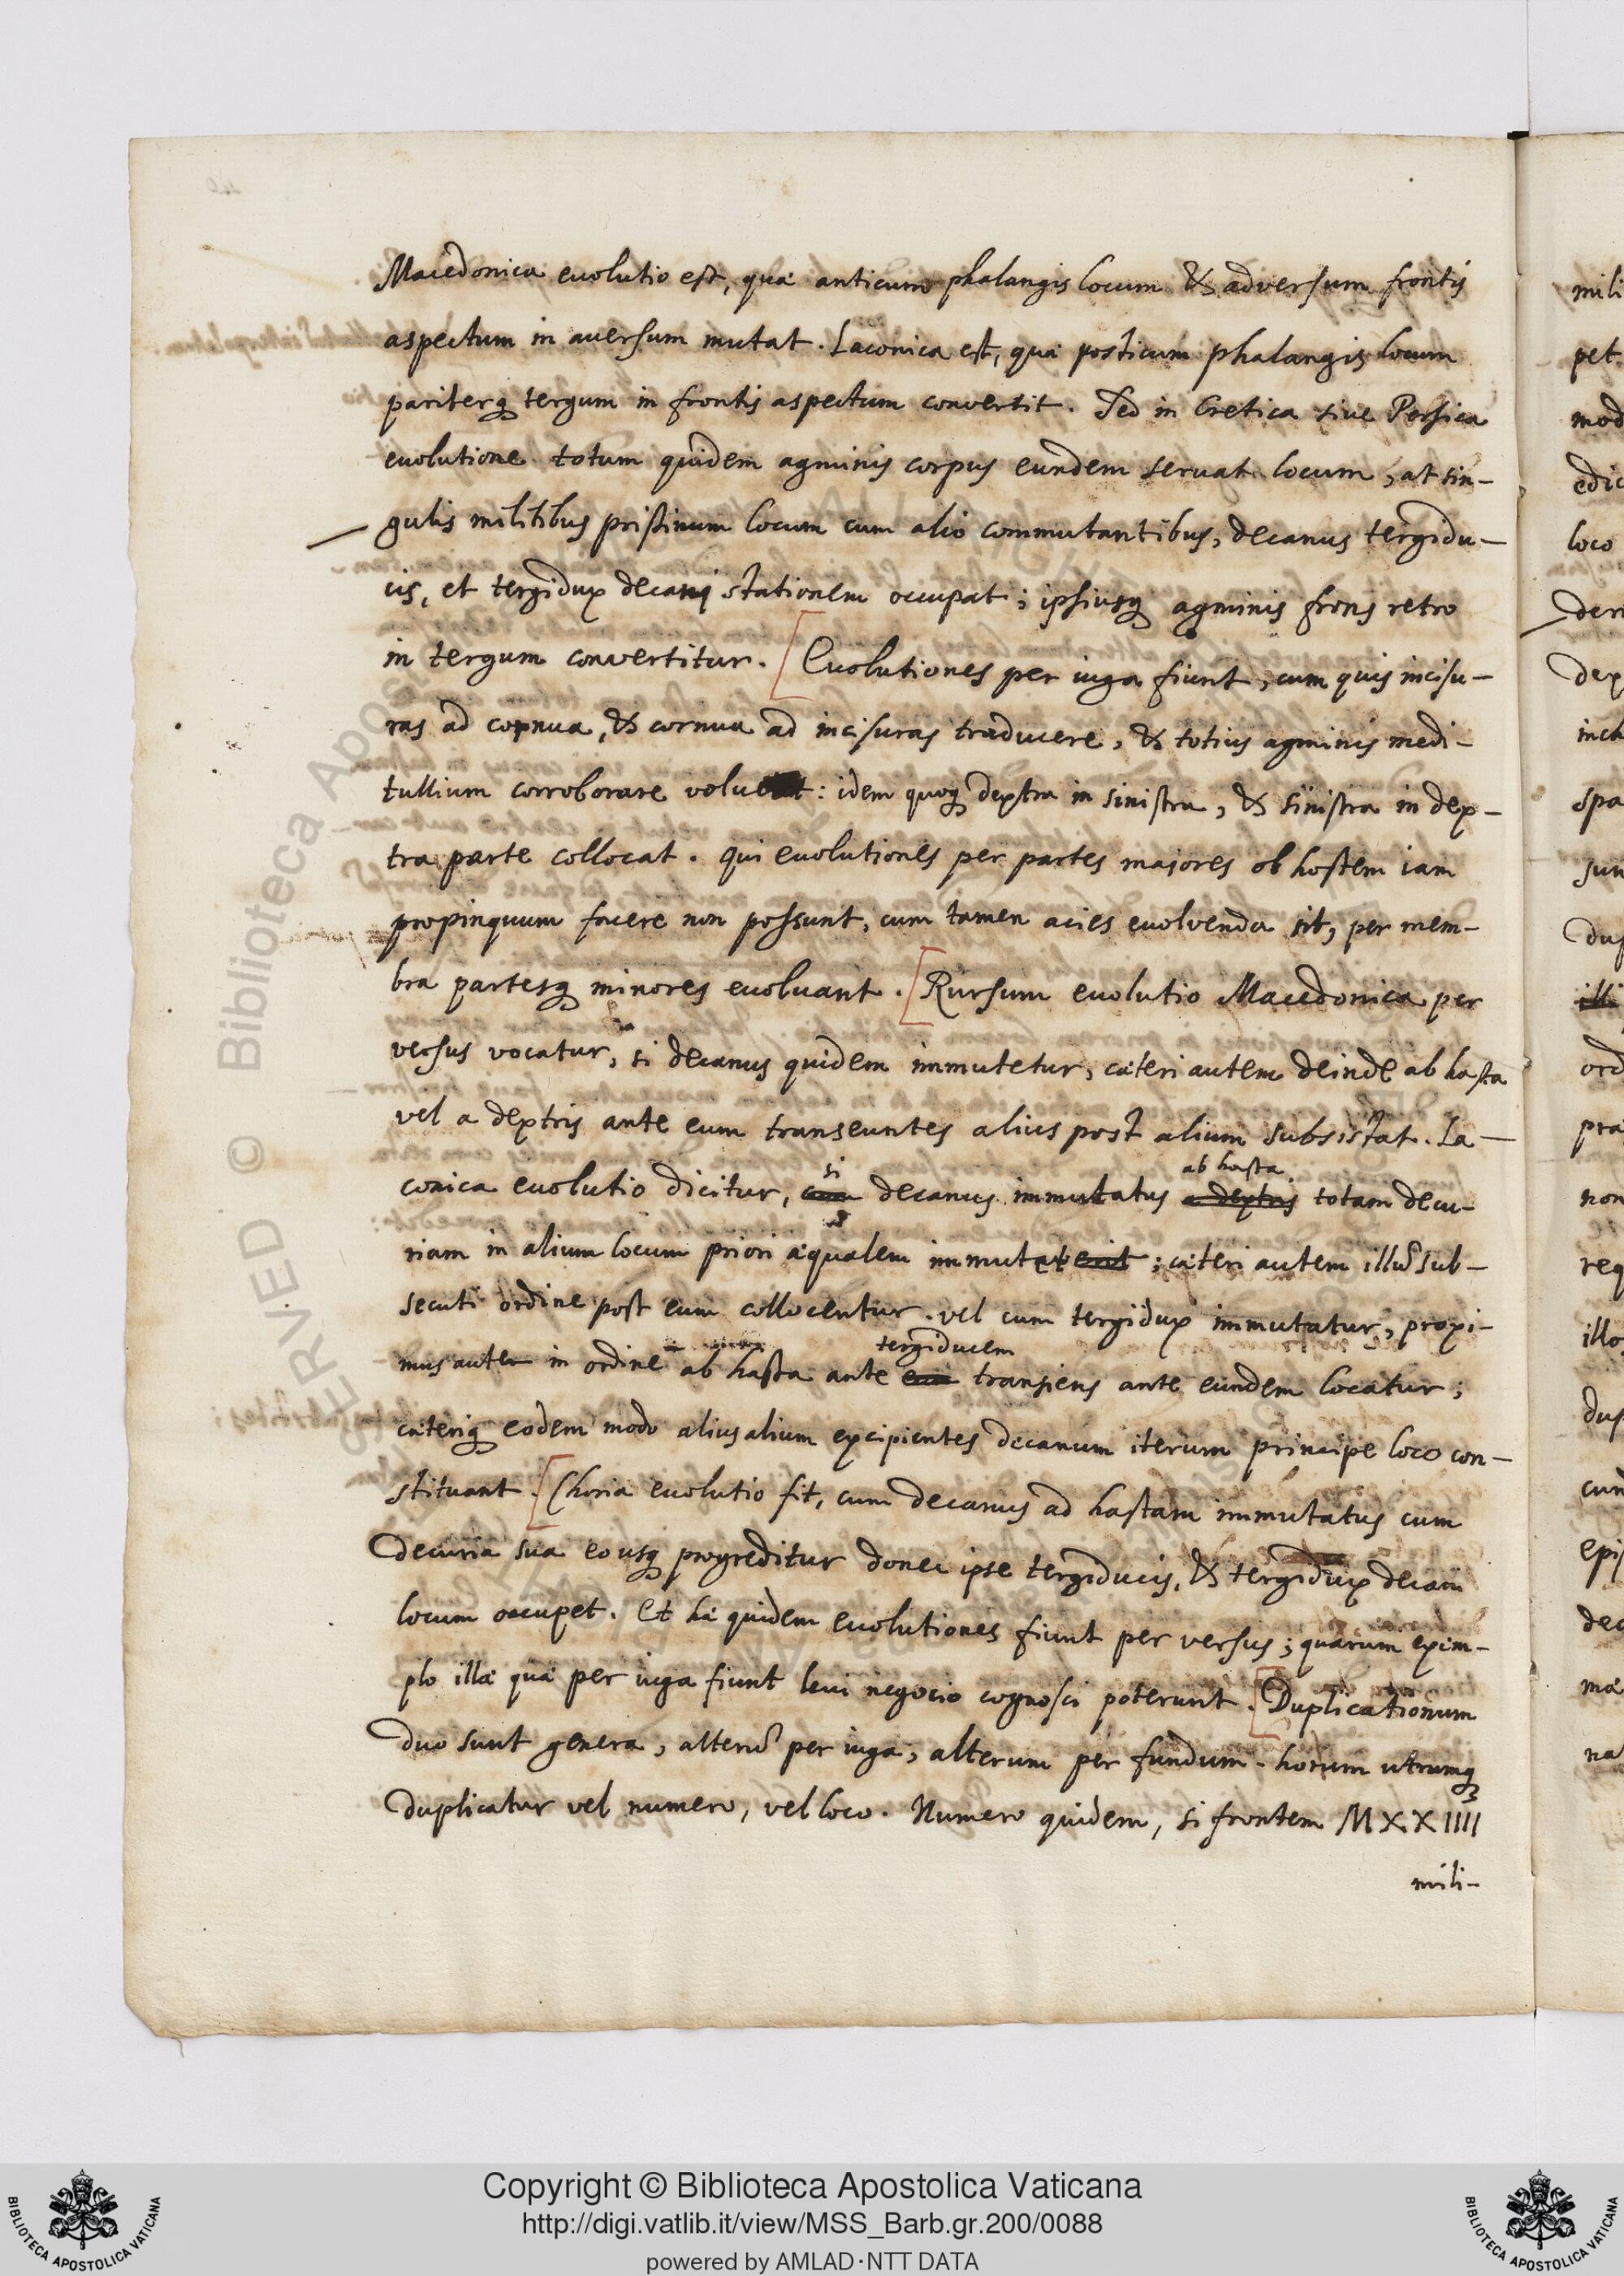 Macedonica euolutio est, quæ anticum phalangis locum & adversum frontis
aspectum in auersum mutat. Laconica est, quæ posticum phalangis locum
pariterq; tergum in frontis aspectum convertit. Sed in Cretica siue Persica
euolutione totum quidem agminis corpus eundem seruat locum, at sin-
gulis militibus pristinum locum cum alio commutantibus, decanus tergidu-
cis, et tergidux decani stationem occupat; ipsiusq; agminis frons retro
in tergum convertitur. [Euolutiones per iuga fiunt, cum quis incisu-
ras ad cornua, & cornua ad incisuras traducere, & totius agminis medi-
tullium corroborare : idem quoq; dextra in sinistra, & sinistra in dex-
tra parte collocat. qui euolutiones per partes majores ob hostem iam
propinquum facere non possunt, cum tamen acies euoluenda sit, per mem-
bra partesq; minores euoluant. [Rursum euolutio Macedonica per
versus vocatur, si decanus quidem immutetur, cæteri autem deinde ab hasta
vel a dextris ante eum transeuntes alius post alium subsistat. La-
si ab hasta
conica euolutio dicitur, cum decanus immutatus a dextris totam decu-
riam in alium locum priori æqualem ; cæteri autem illū sub-
secuti ordine post eum collocentur. vel cum tergidux immutatur, proxi-
tergiducem
mus autem in ordine ab hasta ante eum transiens ante eundem locatur;
cæteriq; eodem modo alius alium excipientes decanum iterum principe loco con-
stituant. [Choria euolutio fit, cum decanus ad hastam immutatus cum
decuria sua eousq; progreditur donec ipse tergiducis, & tergidux decani
locum occupet. Et hæ quidem euolutiones fiunt per versus; quarum exem-
plo illæ quæ per iuga fiunt leui negocio cognosci poterunt. [Duplicationum
duo sunt genera, alterū per iuga, alterum per fundum. horum utrumq;
duplicatur vel numero, vel loco. Numero quidem, si frontem MXXIIII
mili-
mili
pet
mod
edic
loco
spa
sun
dup
illi
ord
pra
non
req
illo
dup
cun
epis
dec
ma
na
© Biblioteca Apostolica Vaticana
Copyright © Biblioteca Apostolica Vaticana
http://digi.vatlib.it/view/MSS_Barb.gr.200/0088
powered by AMLAD·NTT DATA
BIBLIOTECA APOSTOLICA VATICANA
BIBLIOTECA APOSTOLICA VATICANA